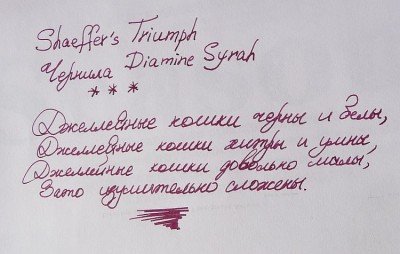 Shaeffer's Triumph
Чернила Diamine Syrah
* * *
Джеллевные кошки черны и белы,
Джеллевные кошки хитры и умны,
Джеллейные кошки довольно малы,
Зато изумительно сложены.